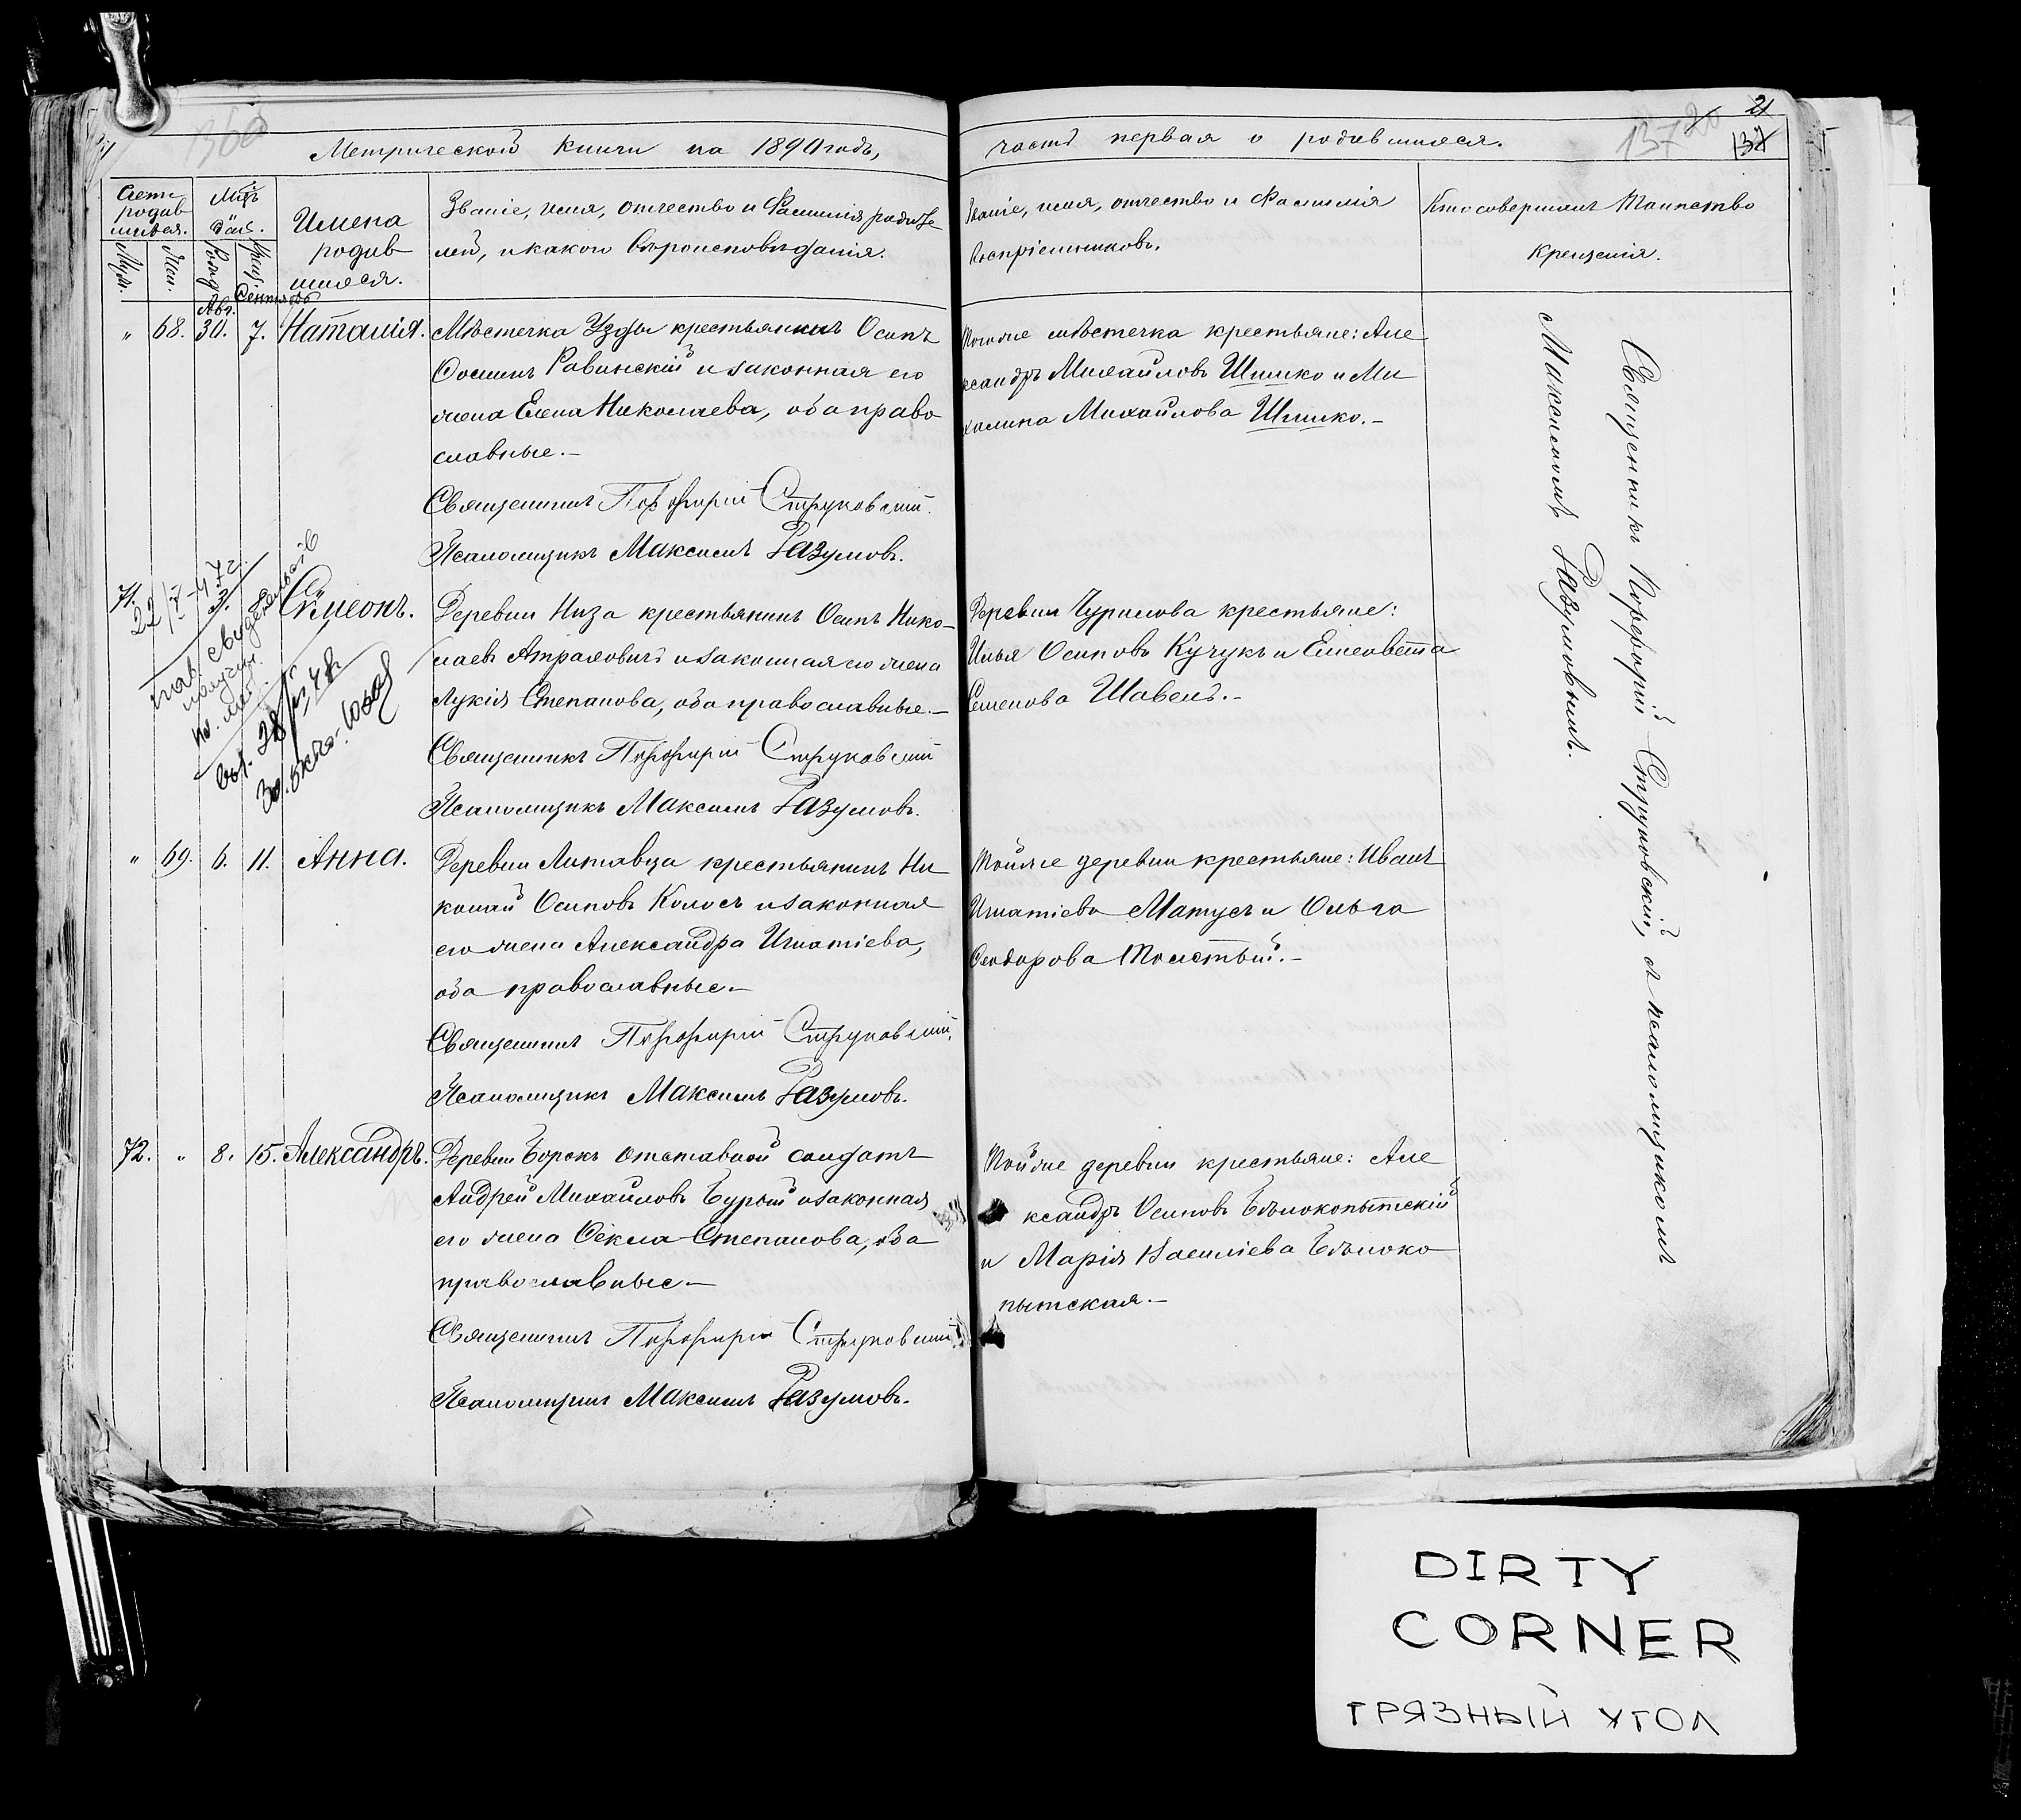 Метрической книги на 1890 годъ,
часть первая о родившихся.
137
20
21
Счетъ
родив
шихся.
Муж.
Жен.
Мѣс.
дни.
Рожд.
Крещ.
Имена
родив
шихся.
Званіе, имя, отчество и фамилія родите
лей, и какого вѣроисповѣданія.
Званіе, имя, отчество и фамилія
воспріемниковъ.
Кто совершалъ таинство
крещенія.
Авг.
Сентябрь
" 68. 30. 7. Наталія.
Мѣстечка Узды крестьянинъ Осипъ
Ѳоминъ Равинскій и законная его
жена Елена Николаева, оба право
славные.–
Священникъ Порфирій Струковскій.
Псаломщикъ Максимъ Разумовъ.
Того же мѣстечка крестьяне: Але
ксандръ Михайловъ Шишко и Ми
халина Михайлова Шишко.–
71.
Сѵмеонъ.
22/7-47г.
Деревни Низа крестьянинъ Осипъ Нико–
лаевъ Атрахович и законная его жена
Лукія Степанова, оба православные.–
Священникъ Порфирій Струковскій
Псаломщикъ Максимъ Разумовъ.
Деревни Чурилова крестьяне:
Илья Осиповъ Кучукъ и Елисавета
Семенова Шавель.–
" 69. 6. 11. Анна.
Деревни Литавца крестьянинъ Ни
колай Осиповъ Колосъ и законная
его жена Александра Игнатіева,
оба православные.–
Священникъ Порфирій Струковскій.
Псаломщикъ Максимъ Разумовъ.
Той же деревни крестьяне: Иванъ
Игнатіевъ Матусъ и Ольга
Ѳеодорова Толстый.–
72. " 8. 15. Александръ.
Деревни Борокъ отставной солдатъ
Андрей Михайловъ Бурый и законная
его жена Ѳекла Степанова, оба
православные.–
Священникъ Порфирій Струковскій.
Псаломщикъ Максимъ Разумовъ.
Той же деревни крестьяне: Але
ксандръ Осиповъ Бѣлокопытскій
и Марія Василіева Бѣлоко
пытская.–
Священникъ Порфирій Струковскій, съ псаломщикомъ
Максимомъ Разумовымъ.
DIRTY
CORNER
ГРЯЗНЫЙ УГОЛ